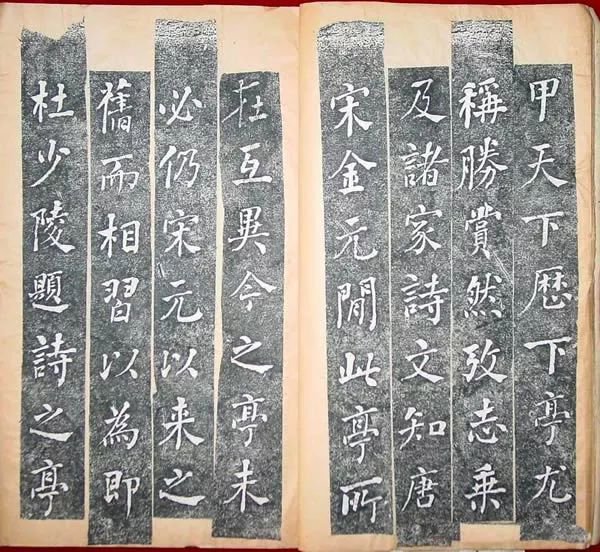 甲天下歷下亭尤
稱勝賞然攷志乘
及諸家詩文知唐
宋金元閒此亭所
在互異今之亭未
必仍宋元以来之
舊而相習以為即
杜少陵題詩之亭